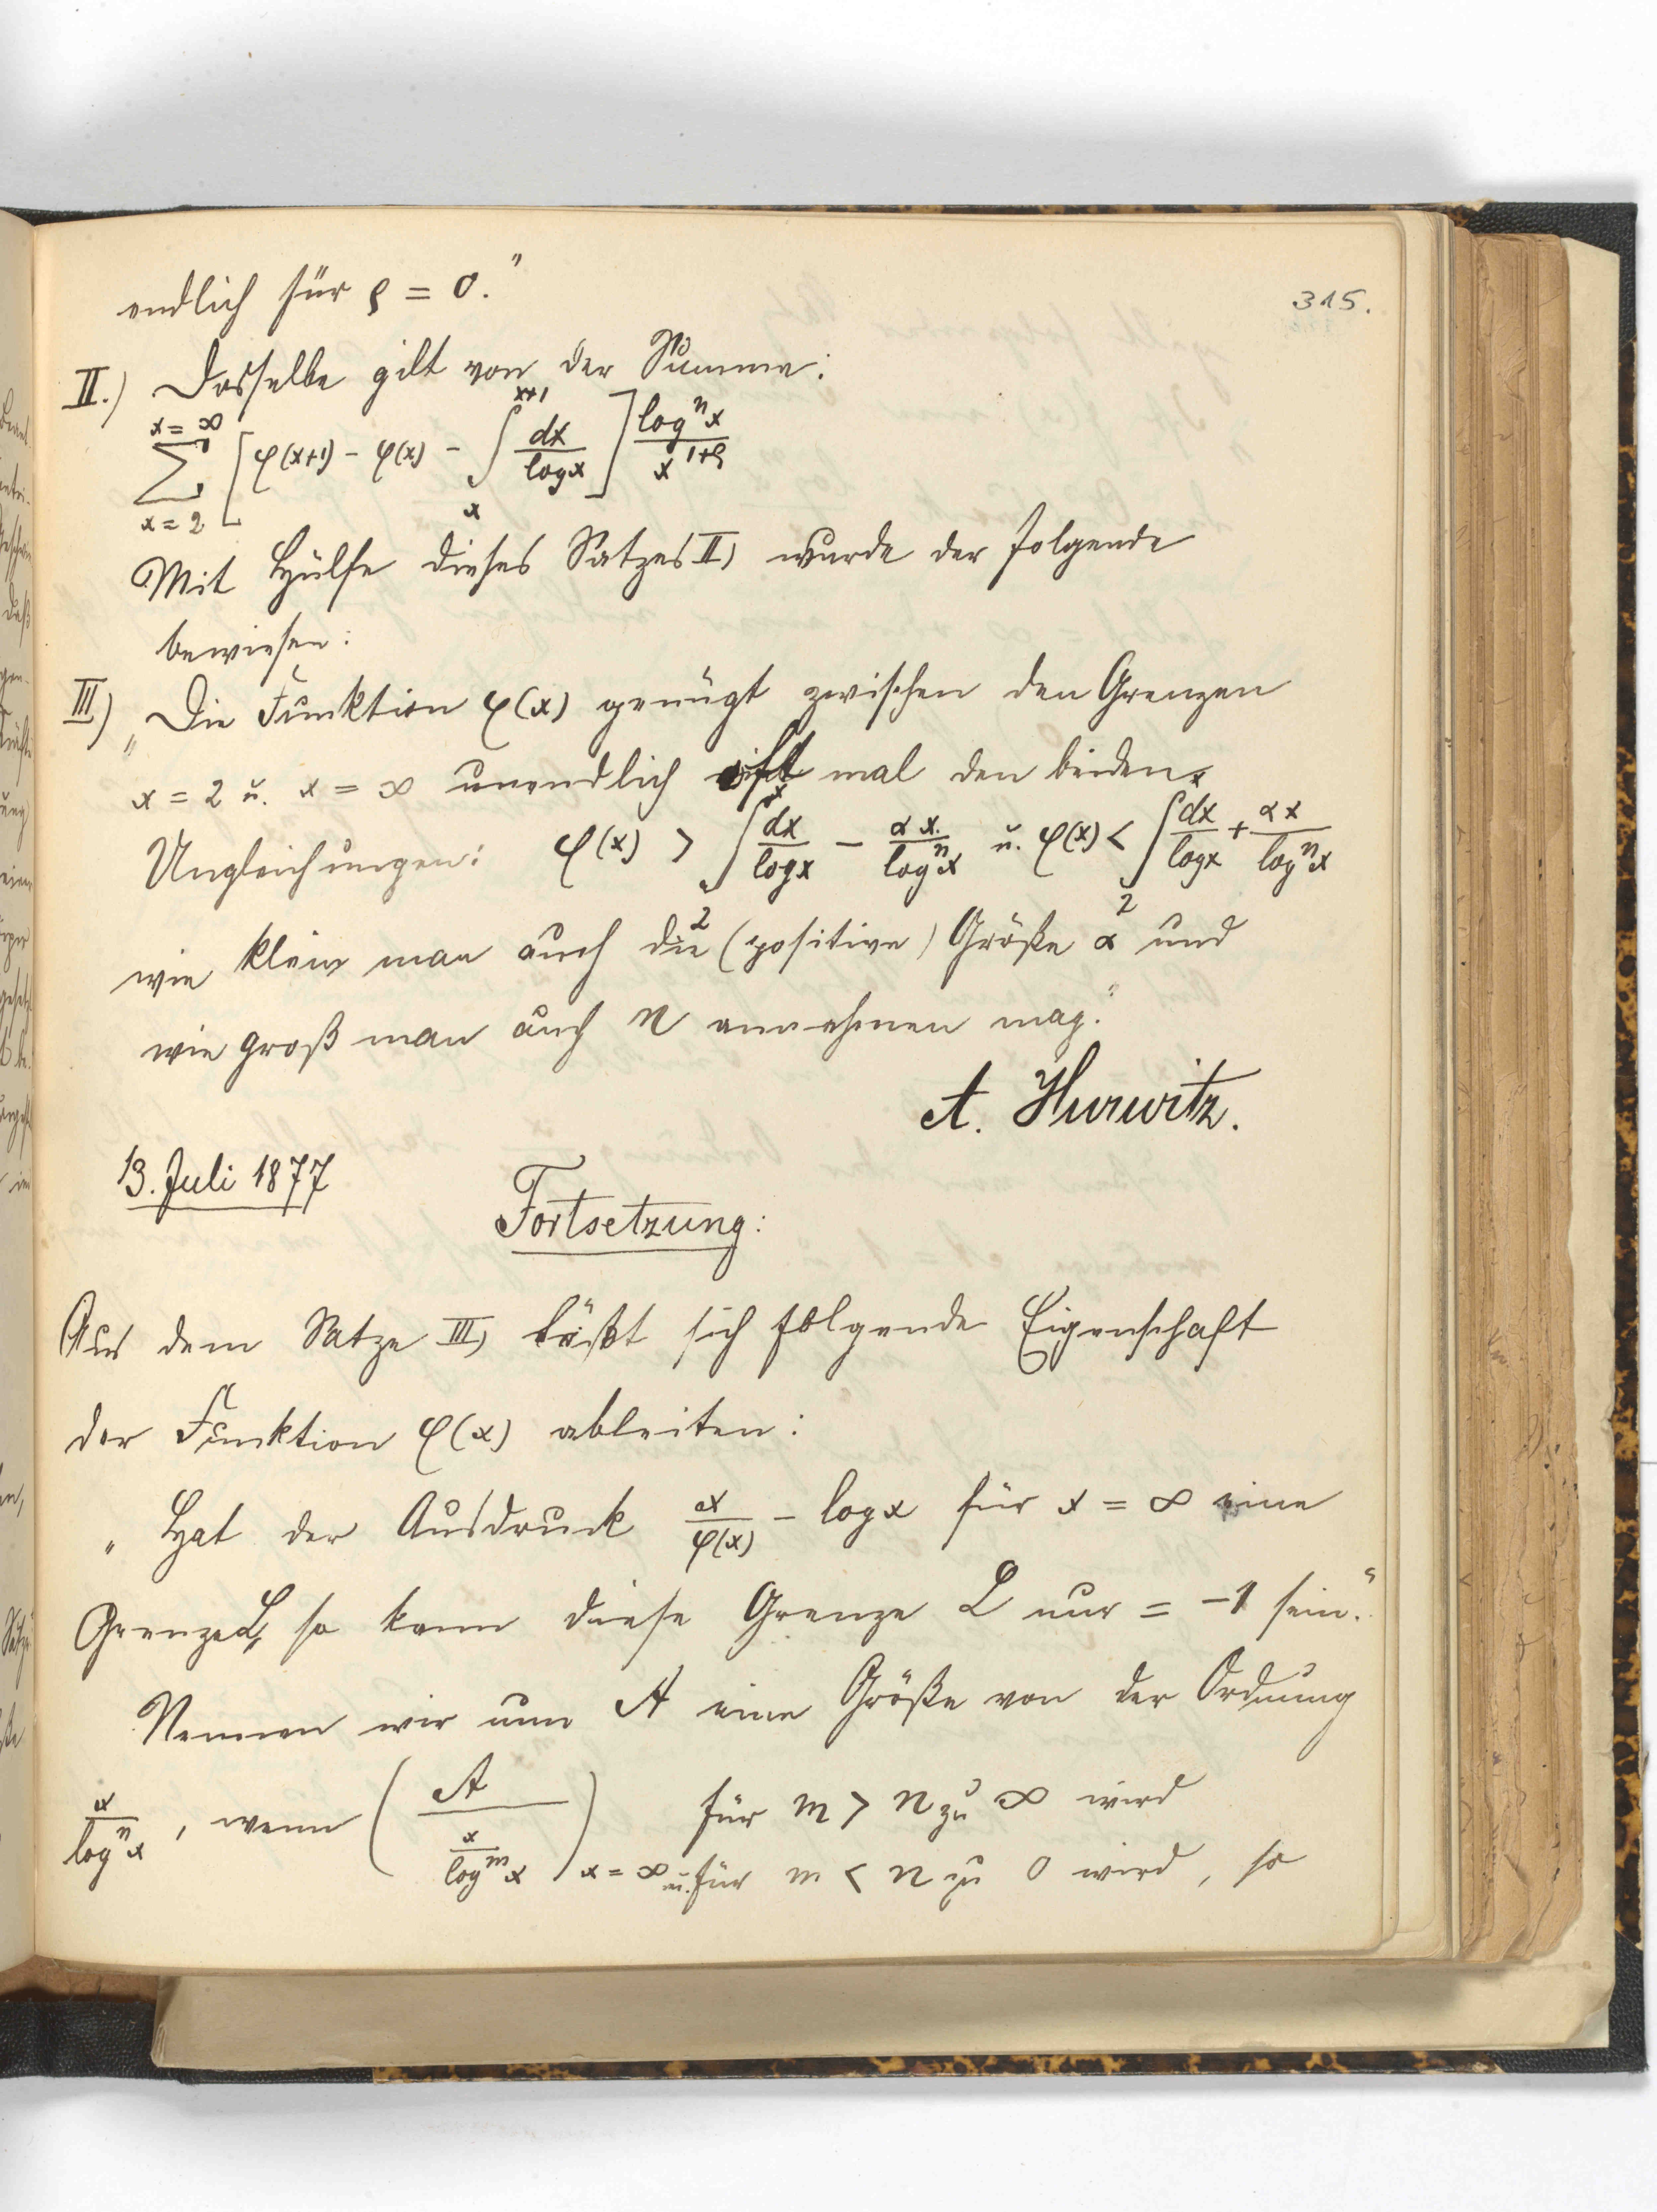 315.
endlich für ρ = 0."
II.) Dasselbe gilt von der Summe:
∑_{x=2}^{x=∞} [φ(x+1) - φ(x) - ∫_x^{x+1} dx/log x] logⁿx/x^{1+ρ}
Mit Hülfe dieses Satzes II) wurde der folgende
bewiesen:
III) „Die Funktion φ(x) genügt zwischen den Grenzen
x = 2 u. x = ∞ unendlich oft mal den beiden
Ungleichungen: φ(x) > ∫_2^x dx/log x - αx/logⁿx u. φ(x) < ∫_2^x dx/log x + αx/logⁿx
wie klein man auch die (positive) Größe α und
wie groß man auch n annehmen mag."
A. Hurwitz.
13. Juli 1877
Fortsetzung:
Aus dem Satze III) läßt sich folgende Eigenschaft
der Funktion φ(x) ableiten:
„Hat der Ausdruck x/φ(x) - log x für x = ∞ eine
Grenze L, so kann diese Grenze L nur = -1 sein."
Nennen wir nun A eine Größe von der Ordnung
x/logⁿx, wenn (A/(x/log^m x))_{x=∞} für m > n zu ∞ wird
u. für m < n zu 0 wird, so